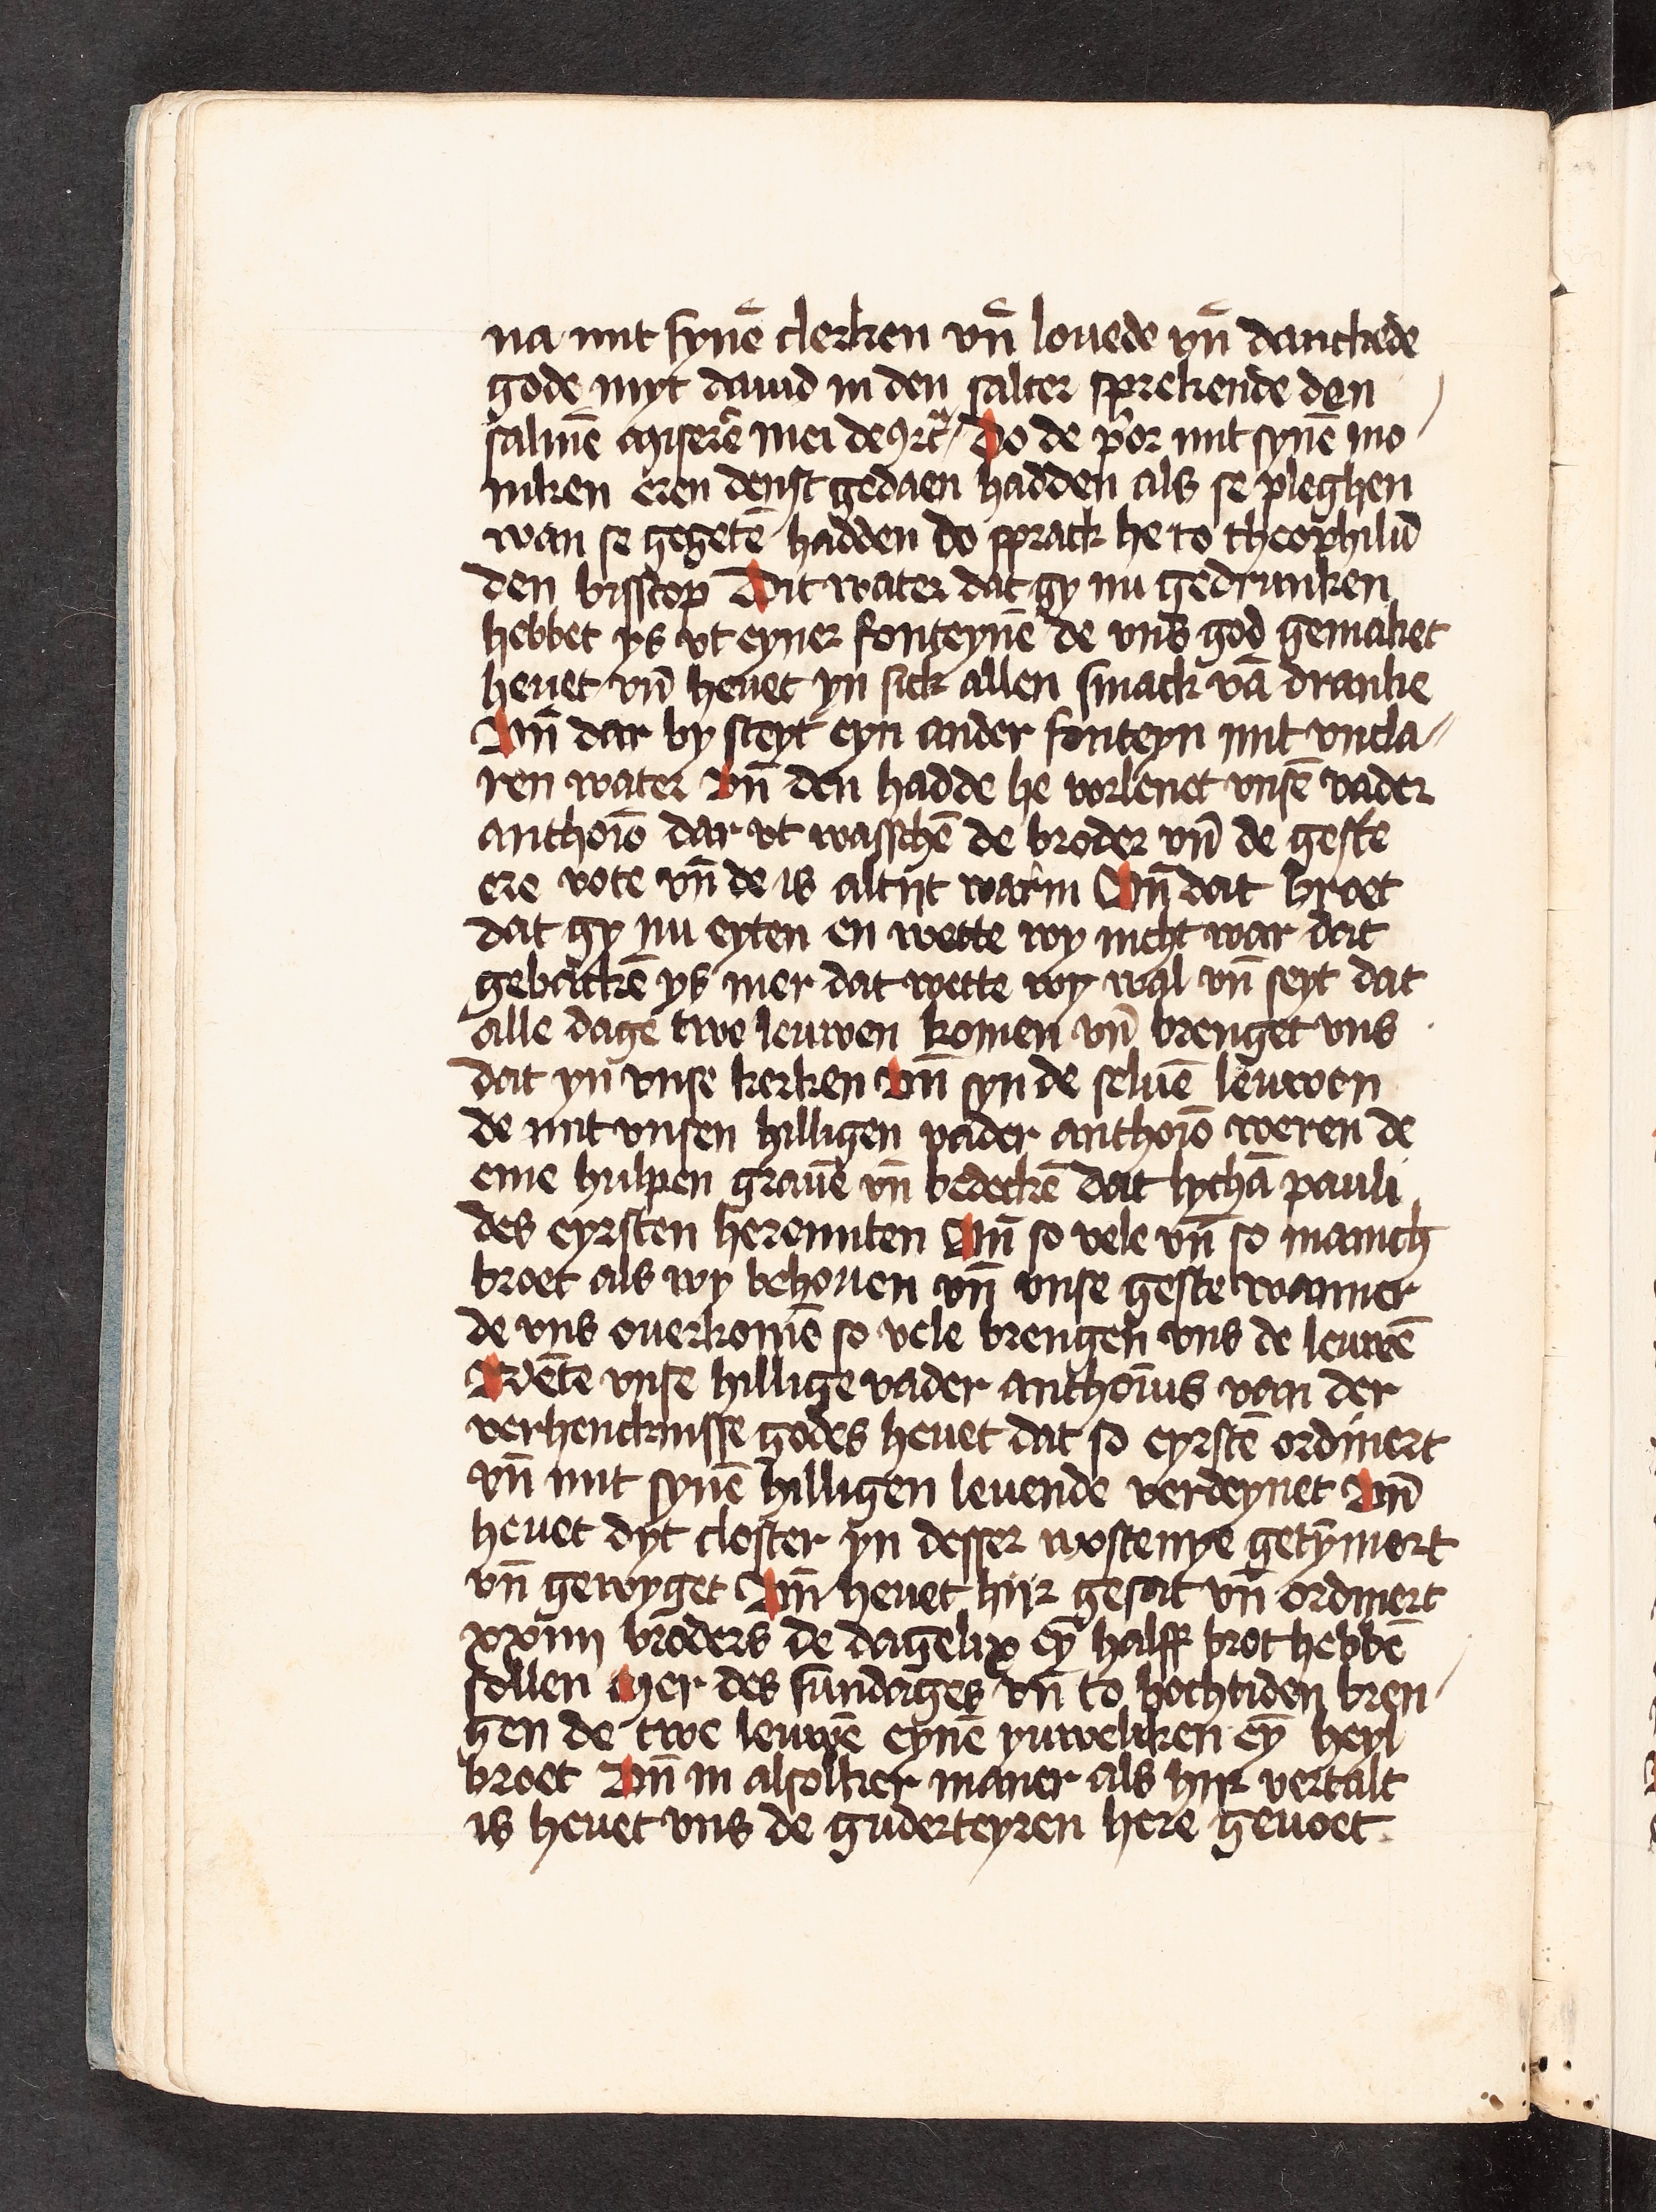 na mit synē clerken vn̄ louede vn̄ danckede
gode myt dauid in den salter sprekende den
salmē Miserē mei deꝰ ꝛcͣ Do de pͥor mit synē mo
niken eren denst gedaen hadden als se pleghen
wan se gegetē hadden do sprack he to theophilū
den bisscop Dit water dat gy nu gedrunken
hebbet ys vt eyner fonteynē de vns god gemaket
heuet vn̄ heuet yn sick allen smack vā dranke
Vn̄ dar by steyt eyn ander fonteyn mit vncla
ren water Vn̄ den hadde he vorlenet vnsē vader
anthoīo dar vt wasschē de broder vn̄ de geste
ere vote vn̄ de is altijt warm Vn̄ dat broet
dat gy nu eyten en wette wy nicht war dat
gebackē ys mer dat wette wy wal vn̄ seyt dat
alle dage twe leuwen komen vn̄ brenget vns
dat yn vnse kerken Vn̄ syn de seluē leuwen
de mit vnsen hilligen vader anthoīo weren de
eme hulpen grauē vn̄ bedeckē dat lychā pauli
des eyrsten heremiten Vn̄ so vele vn̄ so manich
broet als wy behouen vn̄ vnse geste wanner
de vns ouerkomē so vele brengen vns de leuwē
Wēte vnse hillige vader anthoīus van der
verhencknisse godes heuet dat so eyrstē ordinert
vn̄ mit synē hilligen leuende verdeynet Vn̄
heuet dyt closter yn desser wostenye getȳmert
vn̄ gewyget Vn̄ heuet hijr gesat vn̄ ordinert
xxiiij broders de dagelix eȳ halff brot hebbē
sollen Mer des sundages vn̄ to hochtiden bren
gen de twe leuwē eynē yuweliken eȳ heyl
broet Vn̄ in alsolker maner als hijr vertalt
is heuet vns de guderteyren here geuoet